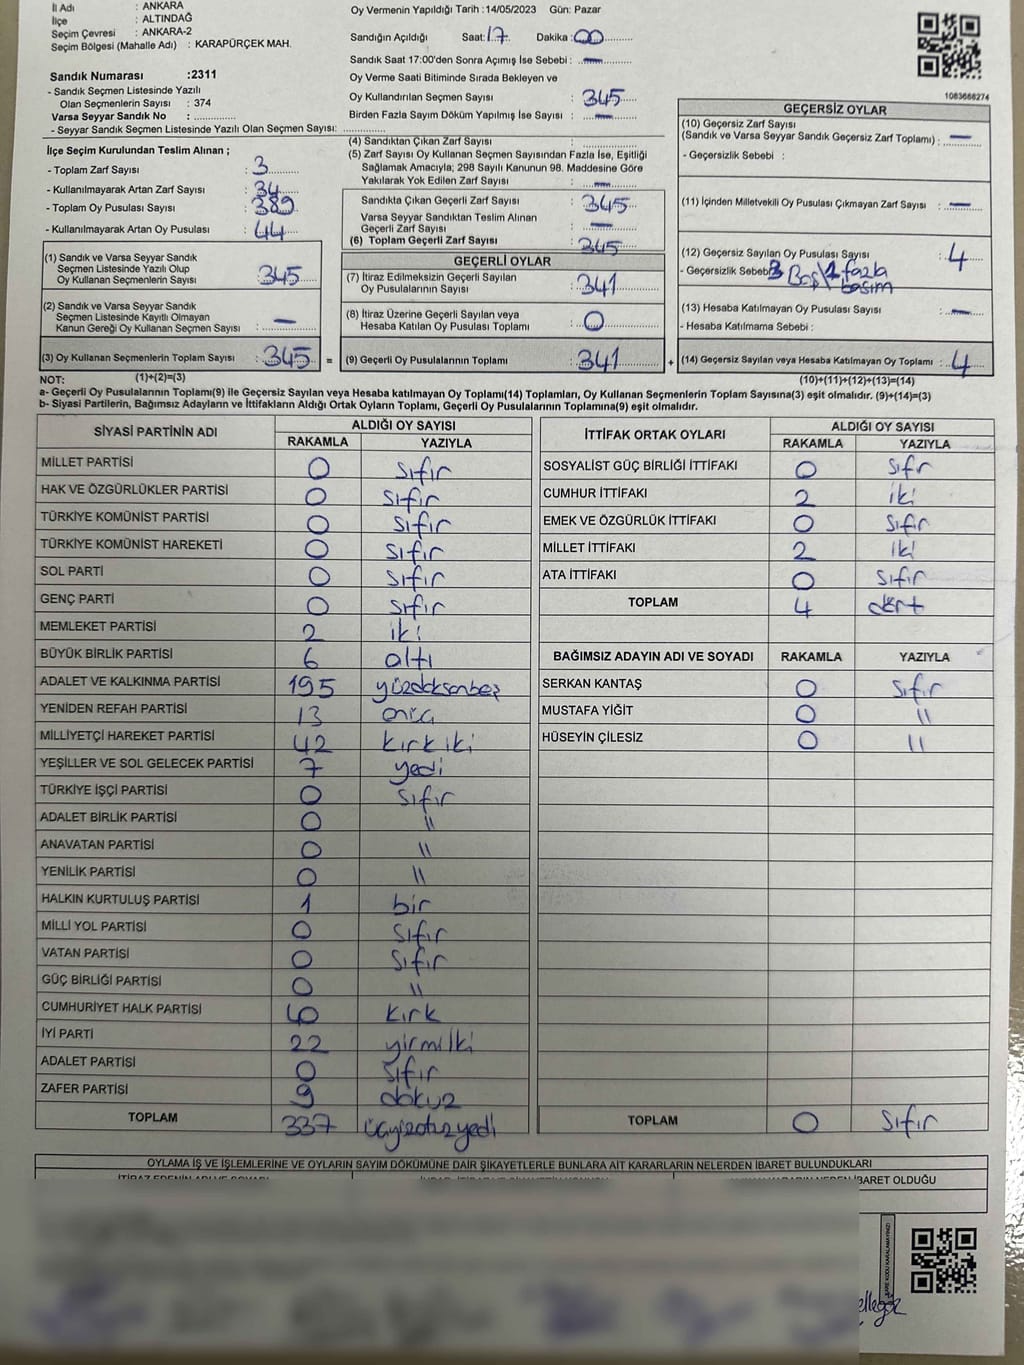 İl Adı : ANKARA
İlçe : ALTINDAĞ
Seçim Çevresi : ANKARA-2
Seçim Bölgesi (Mahalle Adı) : KARAPÜRÇEK MAH.
Sandık Numarası :2311
- Sandık Seçmen Listesinde Yazılı
Olan Seçmenlerin Sayısı : 374
Varsa Seyyar Sandık No :
- Seyyar Sandık Seçmen Listesinde Yazılı Olan Seçmen Sayısı:
İlçe Seçim Kurulundan Teslim Alınan ;
- Toplam Zarf Sayısı : 3
- Kullanılmayarak Artan Zarf Sayısı : 34
- Toplam Oy Pusulası Sayısı : 389
- Kullanılmayarak Artan Oy Pusulası : 44
(1) Sandık ve Varsa Seyyar Sandık
Seçmen Listesinde Yazılı Olup
Oy Kullanan Seçmen Sayısı : 345
(2) Sandık ve Varsa Seyyar Sandık
Seçmen Listesinde Kayıtlı Olmayan
Kanun Gereği Oy Kullanan Seçmen Sayısı : —
(3) Oy Kullanan Seçmenlerin Toplam Sayısı : 345 =
Oy Vermenin Yapıldığı Tarih : 14/05/2023 Gün: Pazar
Sandığın Açıldığı Saat: 17 Dakika : 00
Sandık Saat 17:00'den Sonra Açılmış İse Sebebi : —
Oy Verme Saati Bitiminde Sırada Bekleyen ve
Oy Kullandırılan Seçmen Sayısı : 345
Birden Fazla Sayım Döküm Yapılmış İse Sayısı : —
(4) Sandıktan Çıkan Zarf Sayısı :
(5) Zarf Sayısı Oy Kullanan Seçmen Sayısından Fazla İse, Eşitliği
Sağlamak Amacıyla; 298 Sayılı Kanunun 98. Maddesine Göre
Yakılarak Yok Edilen Zarf Sayısı : —
Sandıkta Çıkan Geçerli Zarf Sayısı : 345
Varsa Seyyar Sandıktan Teslim Alınan
Geçerli Zarf Sayısı : —
(6) Toplam Geçerli Zarf Sayısı : 345
GEÇERLİ OYLAR
(7) İtiraz Edilmeksizin Geçerli Sayılan
Oy Pusulalarının Sayısı : 341
(8) İtiraz Üzerine Geçerli Sayılan veya
Hesaba Katılan Oy Pusulası Toplamı : 0
(9) Geçerli Oy Pusulalarının Toplamı : 341 +
1083666274
GEÇERSİZ OYLAR
(10) Geçersiz Zarf Sayısı
(Sandık ve Varsa Seyyar Sandık Geçersiz Zarf Toplamı) : —
- Geçersizlik Sebebi :
(11) İçinden Milletvekili Oy Pusulası Çıkmayan Zarf Sayısı : —
(12) Geçersiz Sayılan Oy Pusulası Sayısı : 4
- Geçersizlik Sebebi 3 Boş\1 fazla
basım
(13) Hesaba Katılmayan Oy Pusulası Sayısı : —
- Hesaba Katılmama Sebebi :
(14) Geçersiz Sayılan veya Hesaba Katılmayan Oy Toplamı : 4
NOT: (1)+(2)=(3) (10)+(11)+(12)+(13)=(14)
a- Geçerli Oy Pusulalarının Toplamı(9) ile Geçersiz Sayılan veya Hesaba katılmayan Oy Toplamı(14) Toplamları, Oy Kullanan Seçmenlerin Toplam Sayısına(3) eşit olmalıdır. (9)+(14)=(3)
b- Siyasi Partilerin, Bağımsız Adayların ve İttifakların Aldığı Ortak Oyların Toplamı, Geçerli Oy Pusulalarının Toplamına(9) eşit olmalıdır.
SİYASİ PARTİNİN ADI ALDIĞI OY SAYISI
RAKAMLA YAZIYLA
MİLLET PARTİSİ 0 sıfır
HAK VE ÖZGÜRLÜKLER PARTİSİ 0 sıfır
TÜRKİYE KOMÜNİST PARTİSİ 0 sıfır
TÜRKİYE KOMÜNİST HAREKETİ 0 sıfır
SOL PARTİ 0 sıfır
GENÇ PARTİ 0 sıfır
MEMLEKET PARTİSİ 2 iki
BÜYÜK BİRLİK PARTİSİ 6 altı
ADALET VE KALKINMA PARTİSİ 195 yüzdoksanbeş
YENİDEN REFAH PARTİSİ 13
MİLLİYETÇİ HAREKET PARTİSİ 42 kırkiki
YEŞİLLER VE SOL GELECEK PARTİSİ 7 yedi
TÜRKİYE İŞÇİ PARTİSİ 0 sıfır
ADALET BİRLİK PARTİSİ 0 "
ANAVATAN PARTİSİ 0 "
YENİLİK PARTİSİ 0 "
HALKIN KURTULUŞ PARTİSİ 1 bir
MİLLİ YOL PARTİSİ 0 sıfır
VATAN PARTİSİ 0 sıfır
GÜÇ BİRLİĞİ PARTİSİ 0 "
CUMHURİYET HALK PARTİSİ 40 kırk
İYİ PARTİ 22 yirmiiki
ADALET PARTİSİ 0 sıfır
ZAFER PARTİSİ 9 dokuz
TOPLAM 337 üçyüzotuzyedi
İTTİFAK ORTAK OYLARI ALDIĞI OY SAYISI
RAKAMLA YAZIYLA
SOSYALİST GÜÇ BİRLİĞİ İTTİFAKI 0 sıfr
CUMHUR İTTİFAKI 2 iki
EMEK VE ÖZGÜRLÜK İTTİFAKI 0 sıfır
MİLLET İTTİFAKI 2 iki
ATA İTTİFAKI 0 sıfır
TOPLAM 4 dört
BAĞIMSIZ ADAYIN ADI VE SOYADI RAKAMLA YAZIYLA
SERKAN KANTAŞ 0 sıfır
MUSTAFA YİĞİT 0 "
HÜSEYİN ÇİLESİZ 0 "
TOPLAM 0 sıfır
OYLAMA İŞ VE İŞLEMLERİNE VE OYLARIN SAYIM DÖKÜMÜNE DAİR ŞİKAYETLERLE BUNLARA AİT KARARLARIN NELERDEN İBARET BULUNDUKLARI
İBARET OLDUĞU